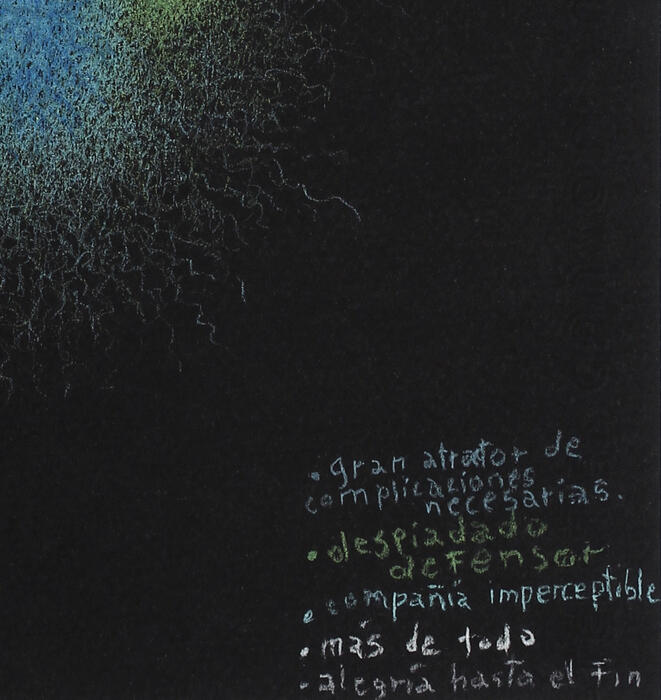 • gran atractor de
complicaciones
necesarias.
• despiadado
defensor
• compañía imperceptible
• más de todo
• alegría hasta el fin